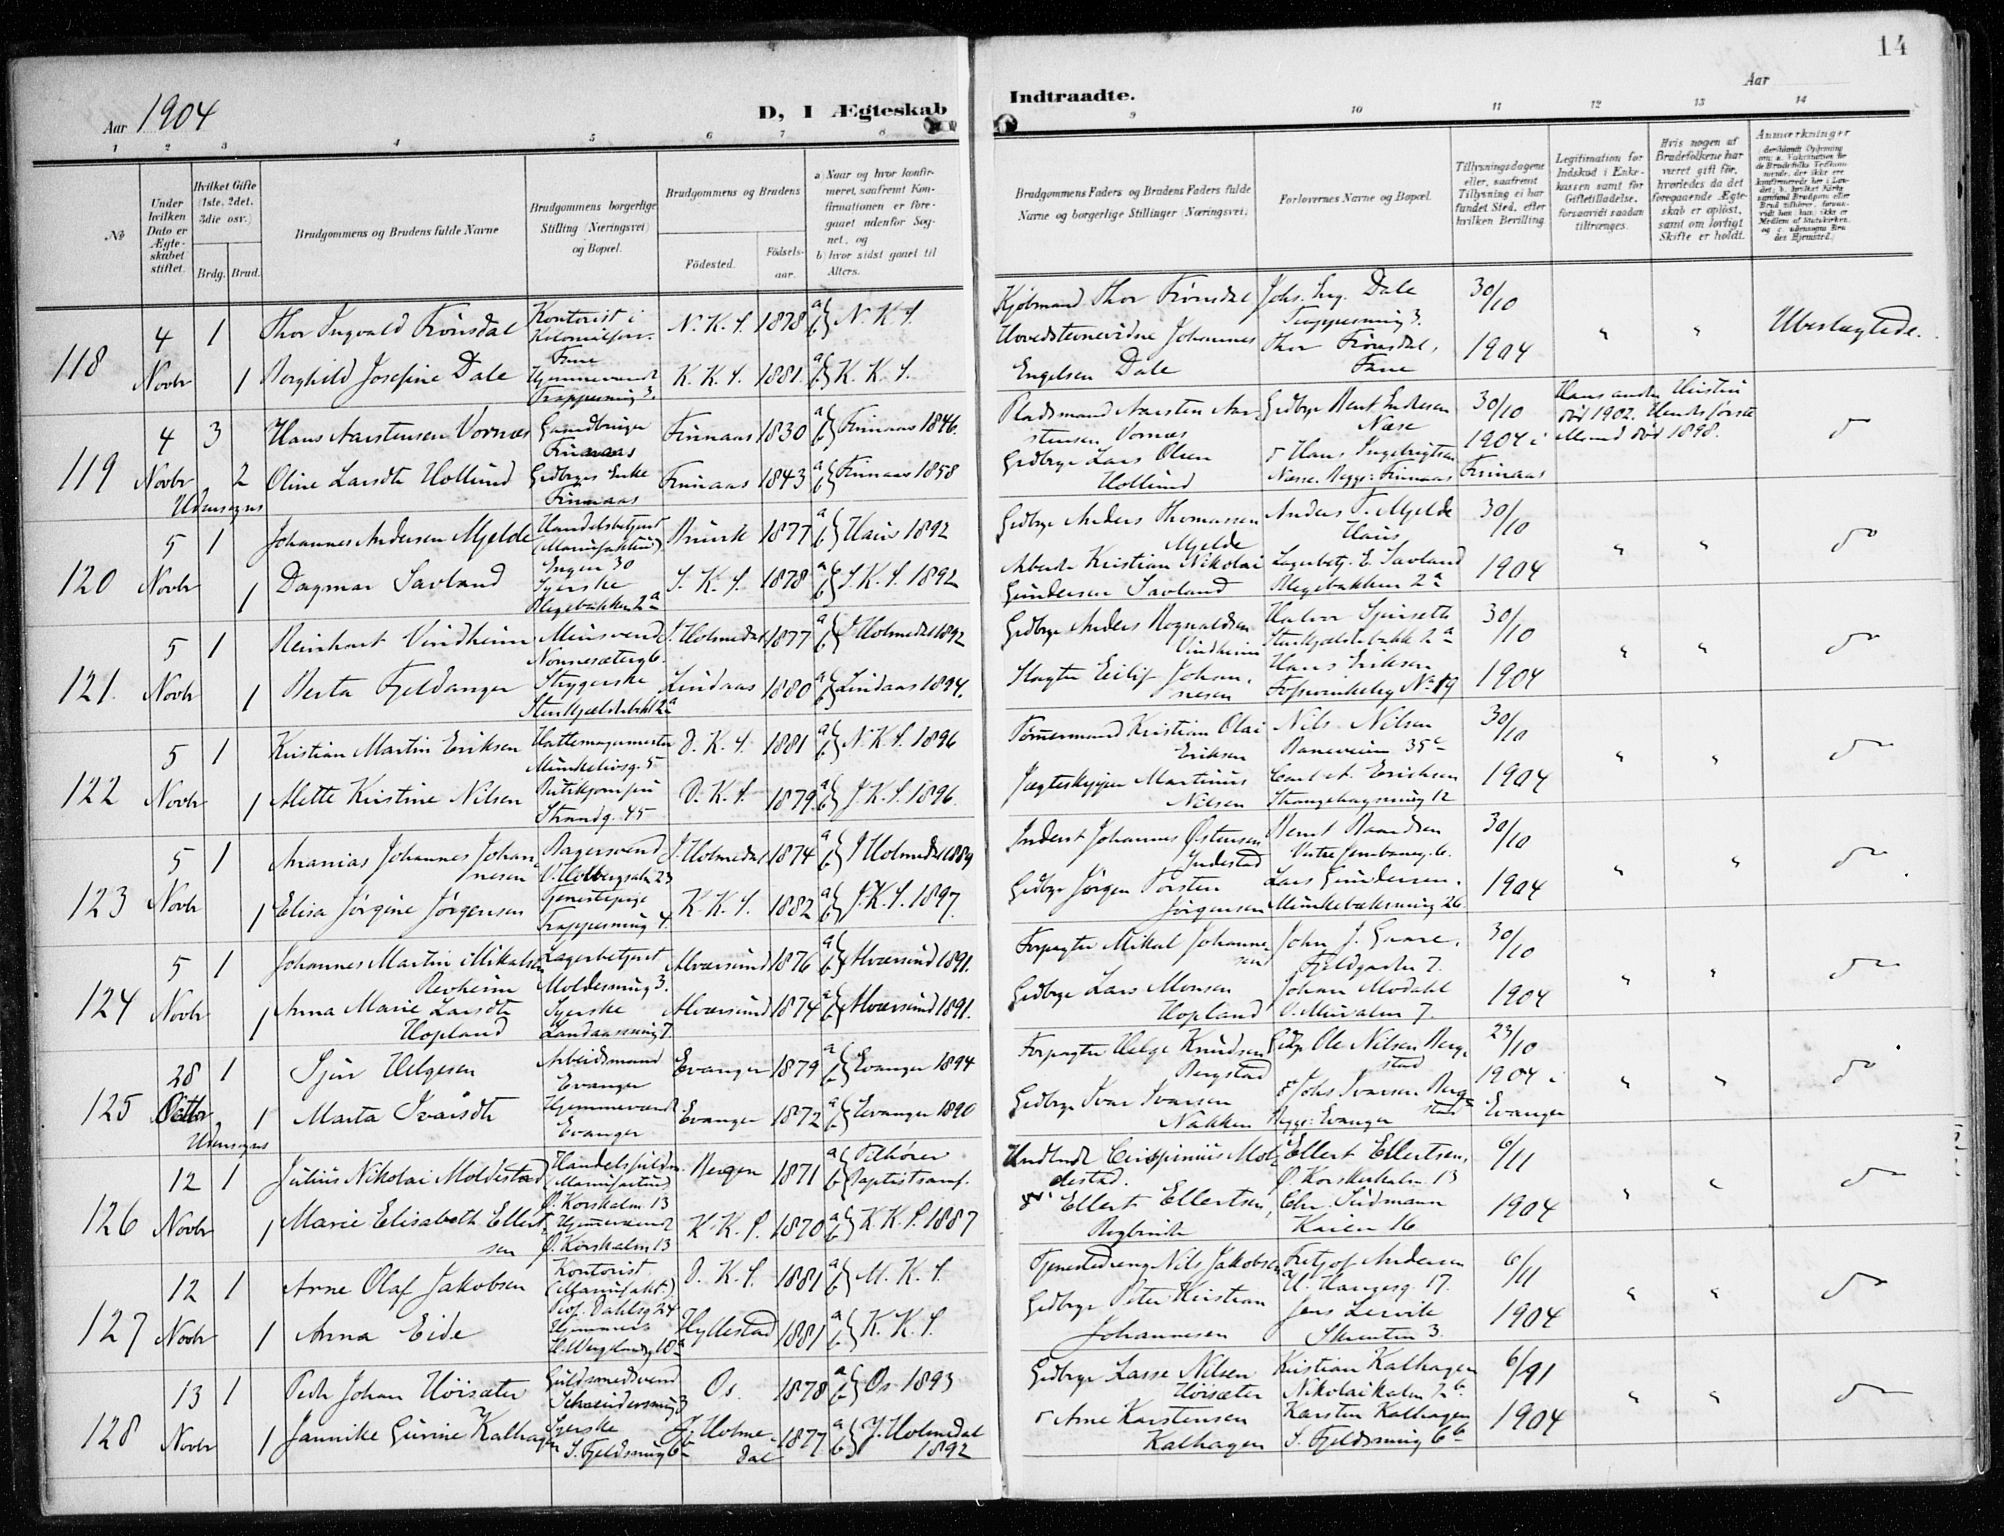 14
Aar 1904
D, I Ægteskab Indtraadte.
Aar
1 2 3 4 5 6 7 8 9 10 11 12 13 14
No
Under hvilken Dato er Ægteskabet stiftet.
Hvilket Gifte (1ste, 2det, 3die osv.)
Brdg. Brud.
Brudgommens og Brudens fulde Navne
Brudgommens borgerlige Stilling (Næringsvei) og Bopæl.
Brudgommens og Brudens
Födested. Födselsaar.
a) Naar og hvor konfirmeret, saafremt Konfirmationen er foregaaet udenfor Sognet, og
b) hvor sidst gaaet til Alters.
Brudgommens Faders og Brudens Faders fulde Navne og borgerlige Stillinger (Næringsvei)
Forlovernes Navne og Bopæl.
Tillysningsdagene eller, saafremt Tillysning ei har fundet Sted, efter hvilken Bevilling.
Legitimation for Indskud i Enkekassen samt for Giftetilladelse, forsaavidt saadan tiltrænges.
Hvis nogen af Brudefolkene har været gift før, hvorledes da det foregaaende Ægteskab er oplöst, samt om lovligt Skifte er holdt.
Anmærkninger
118 4 Novbr 1 Thor Ingvald Trönsdal Kontorist i Fane N. K. S. 1878 a b N. K. S. Kjöbmand Thor Trönsdal Johs. Eng. Dale Trappesmug 3. 30/10 " " Ubeslægtede.
1 Borghild Josefine Dale Hjemmeværd Trappesmug 3. K. K. S. 1881 a b K. K. S. Johannes Engelsen Dale Thor Trönsdal, Fane 1904
119 4 Novbr 3 Hans Aarstensen Vornæs Gaardbruger Finnaas Finnaas 1830 a b Finnaas 1846. Pladsmand Aarsten Aarstensen Vornæs Grdbrgr Bent Endresen Næse 30/10 Hans anden Hustru död 1902. Hendes förste Mand död 1898. do
2 Oline Larsdtr Hollund Grdbrgrs Enke Finnaas Finnaas 1843 a b Finnaas 1858 Grdbrgr Lars Olsen Hollund Hans Ingebrigtsen Næsse. Begge: Finnaas 1904 i Finnaas
Udensogns
120 5 Novbr 1 Johannes Andersen Mjelde Handelsbetjent (Manufaktur) Engen 30 Bruvik 1877 a b Haus 1892 Grdbrgr Anders Thomassen Mjelde Anders T. Mjelde Haus 30/10 " " do
1 Dagmar Savland Syerske Blegebakken 2a S. K. S. 1878 a b S. K. S. 1892 Kristian Nikolai Gundersen Savland Lagerbetj. E. Savland Blegebakken 2a 1904
121. 5 Novbr 1 Reinhart Vindheim Mursvend Nonnesæterg 6. Y. Holmedal 1877 a b Y Holmedal 1892 Grdbrgr Anders Rognaldsen Vindheim Halvor 2a 30/10 " " do
1 Berta Fjeldanger Strygerske 2a Lindaas 1880 a b Lindaas 1894. Slagter Eilif Johannesen Hans Eriksen No 19 1904
122 5 Novbr 1 Kristian Martin Eriksen Hattemagermester Munkelivsg. 5 D. K. S. 1881 a b N. K. S. 1896 Tömmermand Kristian Olai Eriksen Nils Nilsen Baneveien 35c 30/10 " " do
1 Mette Kristine Nilsen Butikjomfru Strandg. 45 D. K. S. 1879 a b J. K. S. 1896. Jægteskipper Martinus Nilsen Carl A. Erichsen Strangehagsmug 12 1904
123 5 Novbr 1 Ananias Johannes Johannesen Bagersvend 23 Y. Holmedal 1874 a b Y Holmedal 1889 Inderst Johannes Östensen Indestad Bernt Vestre 6. 30/10 " " do
1 Elisa Jörgine Jörgensen Tjenestepige Trappesmug 4. K. K. S. 1882 a b J. K. S. 1897. Grdbgr Jörgen Torsten Jörgensen Lars Gundersen. Munkebæksmug 26 1904
124 5 Novbr 1 Johannes Martin Mikalsen Revheim Lagerbetjent Moldesmug 3. Alversund 1876 a b Alversund 1891. Forpagter Mikal Johannesen John J. Gaare. Fjeldgaden 7. 30/10 " " do
1 Anna Marie Larsdtr Hopland Syerske Landaassmug 7. Alversund 1874 a b Alversund 1891. Grdbrgr Lars Monsen Hopland Johan Modahl Ö. Muralm 7. 1904
125 28 Octbr 1 Sjur Helgesen Arbeidsmand Evanger Evanger 1879 a b Evanger 1894 Forpagter Helge Knudsen Bergstad Grdbgr Ole Nilsen Bergstad 23/10 " " do
1 Marta Ivarsdtr Hjemmeværd Evanger Evanger 1872 a b Evanger 1890 Grdbrgr Ivar Ivarsen Nakken Johs Ivarsen Bergstad Begge: Evanger 1904 i Evanger
Udensogns
126 12 Novbr 1 Julius Nikolai Moldestad Handelsfuldm. (Manufactur) Ö. Korskalm. 13 Bergen 1871 a b Tilhörer Baptistsamf. Crispinius Moldestad. Ellert Ellertsen, Ö. Korskirkalm. 13 6/11 " " do
1 Marie Elisabeth Ellertsen Hjemmeværd Ö. Korskalm 13 K. K. S. 1870 a b K. K. S. 1887 do Ellert Ellertsen, Chr. Südmann Kaien 16 1904
127 12 Novbr 1 Arne Olaf Jakobsen Kontorist (Manufakt.) Prof. Dahlsg 24 D. K. S. 1881 a b M. K. S. Tjenestedreng Nils Jakobsen Fritjof Andersen H. Haugesg. 17. 6/11 " " do
1 Anna Eide Hjemmevs 18a Hyllestad 1881 a b K. K. S. Grdbrgr Peter Kristian Johannesen Jens Lervik Skuntin 3. 1904
128 13 Novbr 1 Peder Johan Höisæter Guldsmedsvend 3 Os. 1878 a b Os 1893 Grdbrgr Lasse Nilsen Höisæter Kristian Kalhagen Nikolaikalm. 2b. 6/91 " " do
1 Jannike Gurine Kalhagen Syerske S. Fjeldsmug 6b Y. Holmedal 1877 a b Y. Holmedal 1892 Arne Karstensen Kalhagen Karsten Kalhagen S. Fjeldsmug 6b 1904